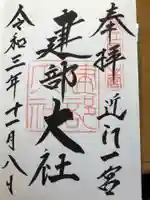 奉拝
近江一宮
建部大社
令和三年十一月八日